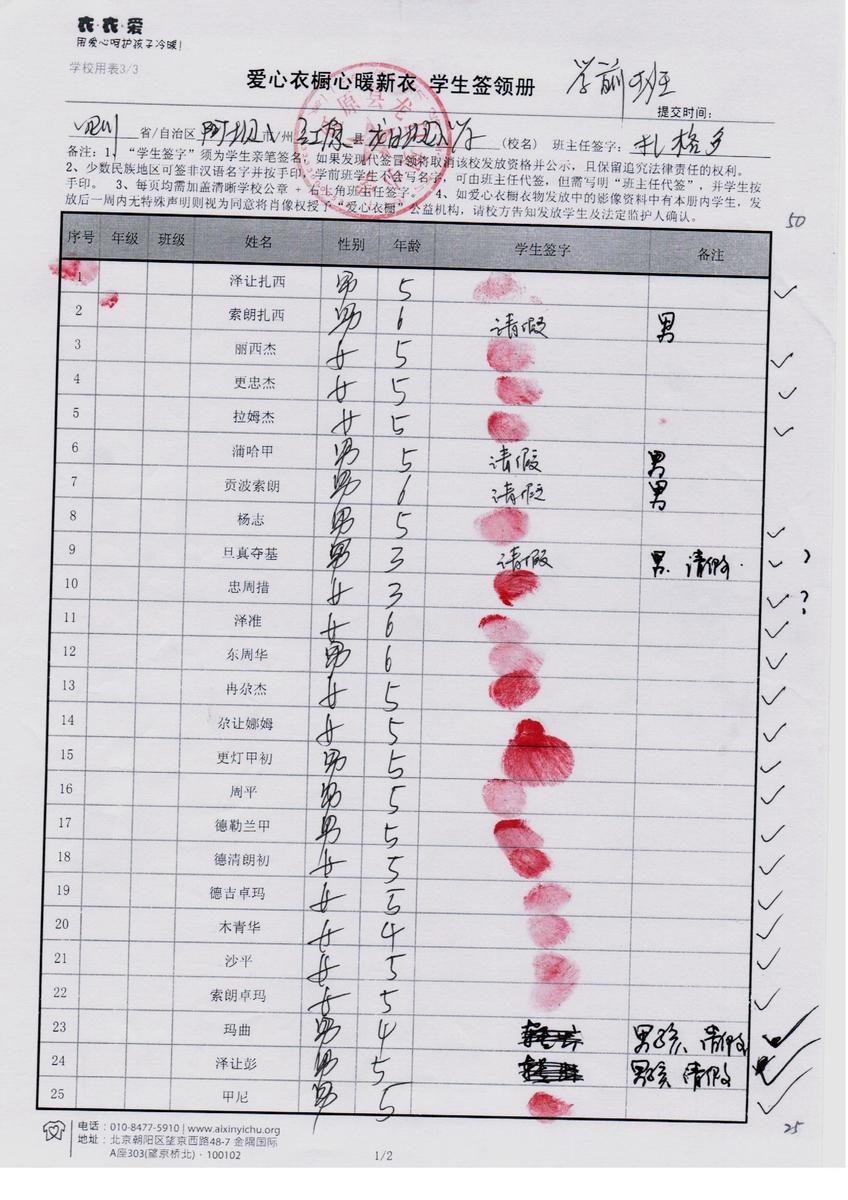 衣·衣·爱
用爱心呵护孩子冷暖!
学校用表3/3
爱心衣橱心暖新衣 学生签领册 学前班
提交时间:
四川 省/自治区 阿坝 市/州 红原 县 龙日坝小学 (校名) 班主任签字: 扎格多
备注: 1、“学生签字”须为学生亲笔签名,如果发现代签冒领将取消该校发放资格并公示,且保留追究法律责任的权利。
2、少数民族地区可签非汉语名字并按手印。学前班学生不会写名字,可由班主任代签,但需写明“班主任代签”,并学生按
手印。 3、每页均需加盖清晰学校公章,右上角班主任签字。 4、如爱心衣橱衣物发放中的影像资料中有本册内学生,发
放后一周内无特殊声明则视为同意将肖像权授予“爱心衣橱”公益机构,请校方告知发放学生及法定监护人确认。
50
序号 年级 班级 姓名 性别 年龄 学生签字 备注
1 泽让扎西 男 5 ✓
2 索朗扎西 男 6 请假 男
3 丽西杰 女 5 ✓
4 更忠杰 女 5 ✓
5 拉姆杰 女 5 ✓
6 蒲哈甲 男 5 请假 男
7 贡波索朗 男 6 请假 男
8 杨志 男 5 ✓
9 旦真夺基 男 3 请假 男、请假. ✓ ?
10 忠周措 女 3 ✓ ?
11 泽准 女 6 ✓
12 东周华 男 6 ✓
13 冉尕杰 女 5 ✓
14 尕让娜姆 女 5 ✓
15 更灯甲初 男 5 ✓
16 周平 男 5 ✓
17 德勒兰甲 男 5 ✓
18 德清朗初 女 5 ✓
19 德吉卓玛 女 5 ✓
20 木青华 女 4 ✓
21 沙平 女 5 ✓
22 索朗卓玛 女 5 ✓
23 玛曲 男 4 男孩、请假 ✓
24 泽让彭 男 5 男孩 请假 ✓
25 甲尼 男 5 ✓
电话:010-8477-5910 | www.aixinyichu.org
地址:北京朝阳区望京西路48-7 金隅国际
A座303(望京桥北)·100102
1/2
25